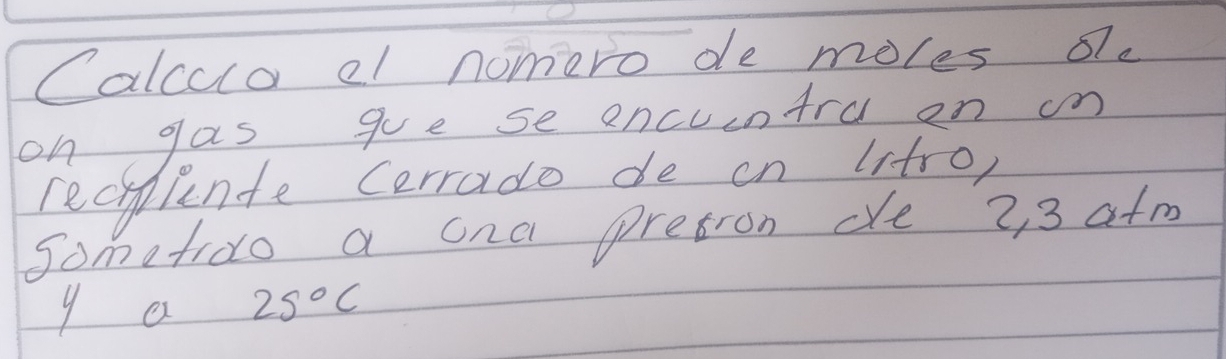 Calcula el número de moles de
un gas que se encuentra en un
recipiente cerrado de un litro,
sometido a una presion de 2,3 atm
y a 25°C